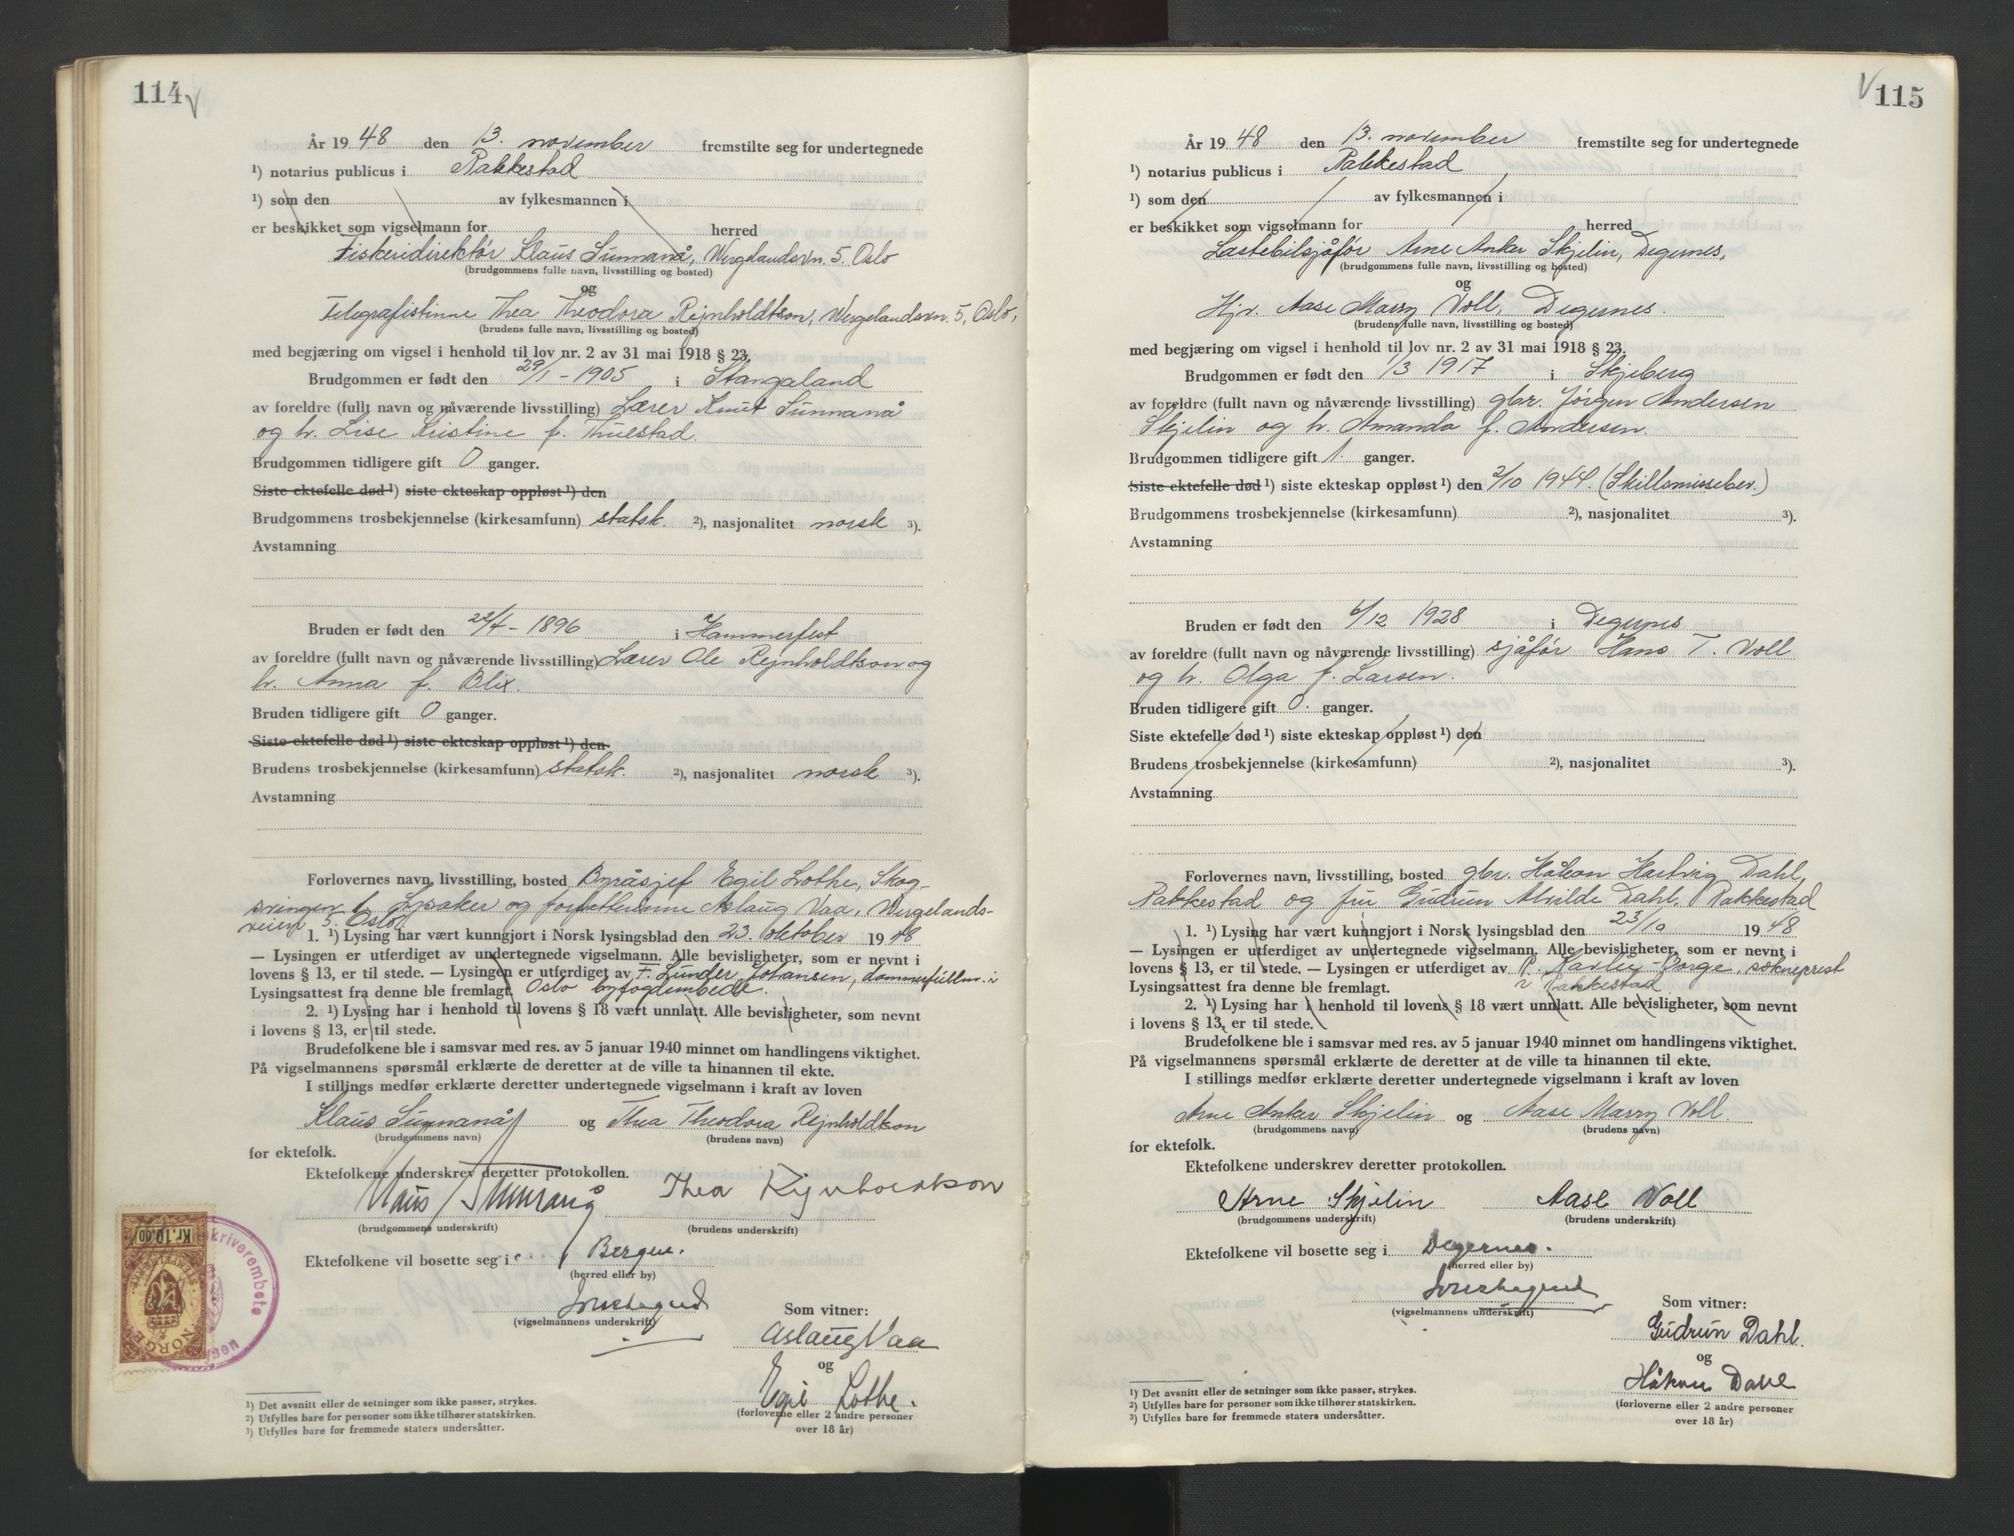 114
År 1948 den 13. november fremstilte seg for undertegnede
¹) notarius publicus i Rakkestad
¹) som den av fylkesmannen i
er beskikket som vigselmann for herred
Fiskeridirektør Klaus Sunnanå, Wergelandsvn. 5. Oslo
(brudgommens fulle navn, livsstilling og bosted)
og
Telegrafistinne Thea Theodora Rejnholdtson, Wergelandsvn. 5, Oslo,
(brudens fulle navn, livsstilling og bosted)
med begjæring om vigsel i henhold til lov nr. 2 av 31 mai 1918 § 23.
Brudgommen er født den 29/1 - 1905 i Stangaland
av foreldre (fullt navn og nåværende livsstilling) Lærer Knut Sunnanå
og h. Lise Kristine f. Thuestad.
Brudgommen tidligere gift 0 ganger.
Siste ektefelle død ¹) siste ekteskap oppløst ¹) den
Brudgommens trosbekjennelse (kirkesamfunn) statsk. ²), nasjonalitet norsk ³).
Avstamning
Bruden er født den 22/4 - 1896 i Hammerfest
av foreldre (fullt navn og nåværende livsstilling) Lærer Ole Rejnholdtson og
h. Anna f. Blix.
Bruden tidligere gift 0 ganger.
Siste ektefelle død ¹) siste ekteskap oppløst ¹) den
Brudens trosbekjennelse (kirkesamfunn) statsk. ²), nasjonalitet norsk ³).
Avstamning
Forlovernes navn, livsstilling, bosted Byråsjef Egil Lothe, Skog-
svingen Lysaker og forfatterinne Aslaug Vaa, Wergelands-
veien 5. Oslo.
1. ¹) Lysing har vært kunngjort i Norsk lysingsblad den 23. oktober 1948
— Lysingen er utferdiget av undertegnede vigselmann. Alle bevisligheter, som er nevnt i
lovens § 13, er til stede. — Lysingen er utferdiget av F. Lunder Johansen, dommerfullm. i
Lysingsattest fra denne ble fremlagt. Oslo byfogdembede.
2. ¹) Lysing har i henhold til lovens § 18 vært unnlatt. Alle bevisligheter, som nevnt
i lovens § 13, er til stede.
Brudefolkene ble i samsvar med res. av 5 januar 1940 minnet om handlingens viktighet.
På vigselmannens spørsmål erklærte de deretter at de ville ta hinannen til ekte.
I stillings medfør erklærte deretter undertegnede vigselmann i kraft av loven
Klaus Sunnanå og Thea Theodora Rejnholdtson
(brudgommens navn) (brudens navn)
for ektefolk.
Ektefolkene underskrev deretter protokollen.
Klaus Sunnanå Thea Rejnholdtson
(brudgommens underskrift) (brudens underskrift)
Ektefolkene vil bosette seg i Bergen.
(herred eller by)
(vigselmannens underskrift)
Som vitner:
Aslaug Vaa
og
Egil Lothe.
(forloverne eller 2 andre personer
over 18 år)
¹) Det avsnitt eller de setninger som ikke passer, strykes.
²) Utfylles bare for personer som ikke tilhører statskirken.
³) Utfylles bare for fremmede staters undersåtter.
Kr. 10.00
STEMPELMERKE
NORGE
skriverembete
115
År 1948 den 13. november fremstilte seg for undertegnede
¹) notarius publicus i Rakkestad
¹) som den av fylkesmannen i
er beskikket som vigselmann for herred
Lastebilsjåfør Arne Anker Skjelin, Degernes,
(brudgommens fulle navn, livsstilling og bosted)
og
Hjv. Aase Marry Voll, Degernes.
(brudens fulle navn, livsstilling og bosted)
med begjæring om vigsel i henhold til lov nr. 2 av 31 mai 1918 § 23.
Brudgommen er født den 1/3 1917 i Skjeberg
av foreldre (fullt navn og nåværende livsstilling) gbr. Jørgen Andersen
Skjelin og h. Amanda f. Andersen.
Brudgommen tidligere gift 1. ganger.
Siste ektefelle død ¹) siste ekteskap oppløst ¹) den 2/10 1944. (Skilsmissebev.)
Brudgommens trosbekjennelse (kirkesamfunn) ²), nasjonalitet ³).
Avstamning
Bruden er født den 6/12 1928 i Degernes
av foreldre (fullt navn og nåværende livsstilling) sjåfør Hans T. Voll
og h. Olga f. Larsen.
Bruden tidligere gift 0. ganger.
Siste ektefelle død ¹) siste ekteskap oppløst ¹) den
Brudens trosbekjennelse (kirkesamfunn) ²), nasjonalitet ³).
Avstamning
Forlovernes navn, livsstilling, bosted gbr. Håkon Hartvig Dahl,
Rakkestad og fru Gudrun Alvilde Dahl, Rakkestad
1. ¹) Lysing har vært kunngjort i Norsk lysingsblad den 23/10 1948
— Lysingen er utferdiget av undertegnede vigselmann. Alle bevisligheter, som er nevnt i
lovens § 13, er til stede. — Lysingen er utferdiget av P. -Borge, sokneprest
Lysingsattest fra denne ble fremlagt. i Rakkestad
2. ¹) Lysing har i henhold til lovens § 18 vært unnlatt. Alle bevisligheter, som nevnt
i lovens § 13, er til stede.
Brudefolkene ble i samsvar med res. av 5 januar 1940 minnet om handlingens viktighet.
På vigselmannens spørsmål erklærte de deretter at de ville ta hinannen til ekte.
I stillings medfør erklærte deretter undertegnede vigselmann i kraft av loven
Arne Anker Skjelin og Aase Marry Voll
(brudgommens navn) (brudens navn)
for ektefolk.
Ektefolkene underskrev deretter protokollen.
Arne Skjelin Aase Voll
(brudgommens underskrift) (brudens underskrift)
Ektefolkene vil bosette seg i Degernes.
(herred eller by)
(vigselmannens underskrift)
Som vitner:
Gudrun Dahl.
og
Håkon Dahl
(forloverne eller 2 andre personer
over 18 år)
¹) Det avsnitt eller de setninger som ikke passer, strykes.
²) Utfylles bare for personer som ikke tilhører statskirken.
³) Utfylles bare for fremmede staters undersåtter.